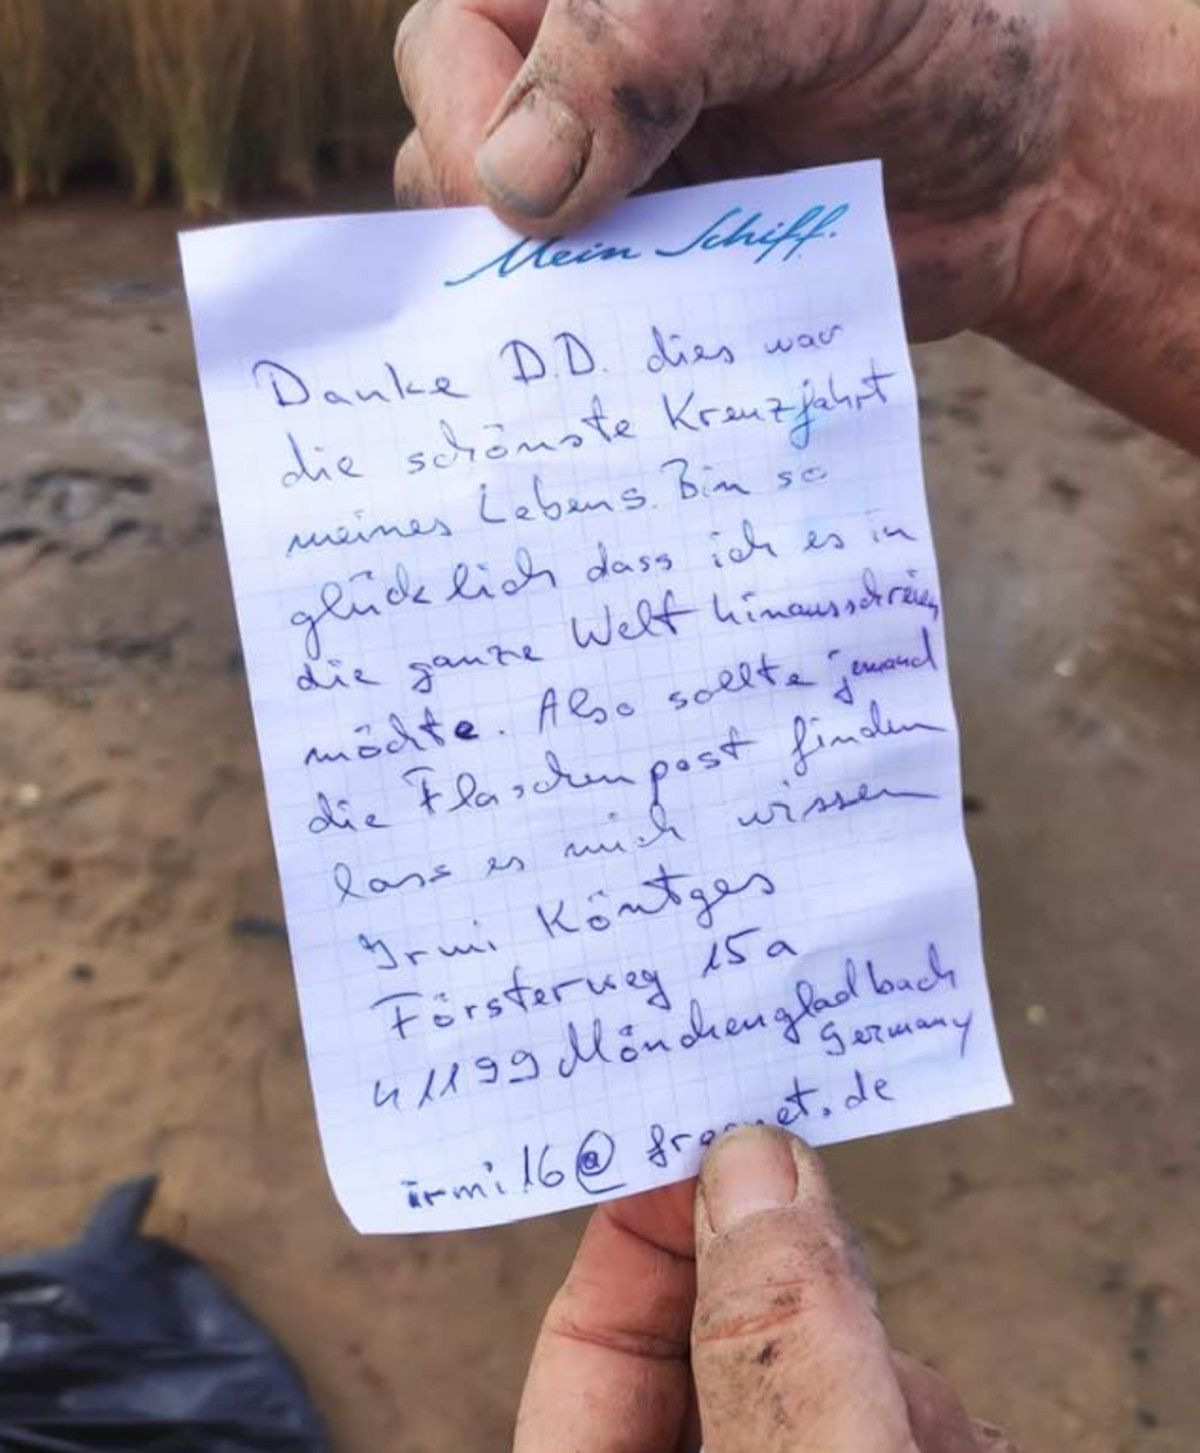 Mein Schiff.
Danke D.D. dies war
die schönste Kreuzfahrt
meines Lebens. Bin so
glücklich dass ich es in
die ganze Welt hinausschreien
möchte. Also sollte jemand
die Flaschenpost finden
lass es mich wissen
Irmi Köntges
Försterweg 15a
41199 Mönchengladbach
Germany
irmi16@